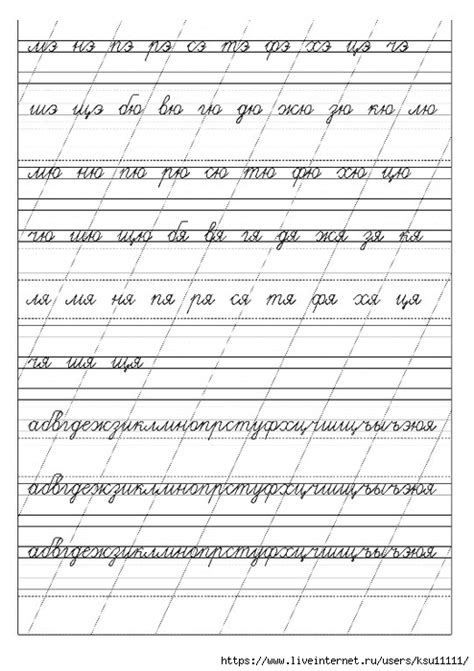 мэ нэ пэ рэ сэ тэ фэ хэ цэ чэ
шэ щэ бю вю гю дю жю зю кю лю
мю ню пю рю сю тю фю хю цю
чю шю щю бя вя гя дя жя зя кя
ля мя ня пя ря ся тя фя хя ця
чя шя щя
абвгдежзиклмнопрстуфхцчшщъыьэюя
абвгдежзиклмнопрстуфхцчшщъыьэюя
абвгдежзиклмнопрстуфхцчшщъыьэюя
https://www.liveinternet.ru/users/ksu11111/